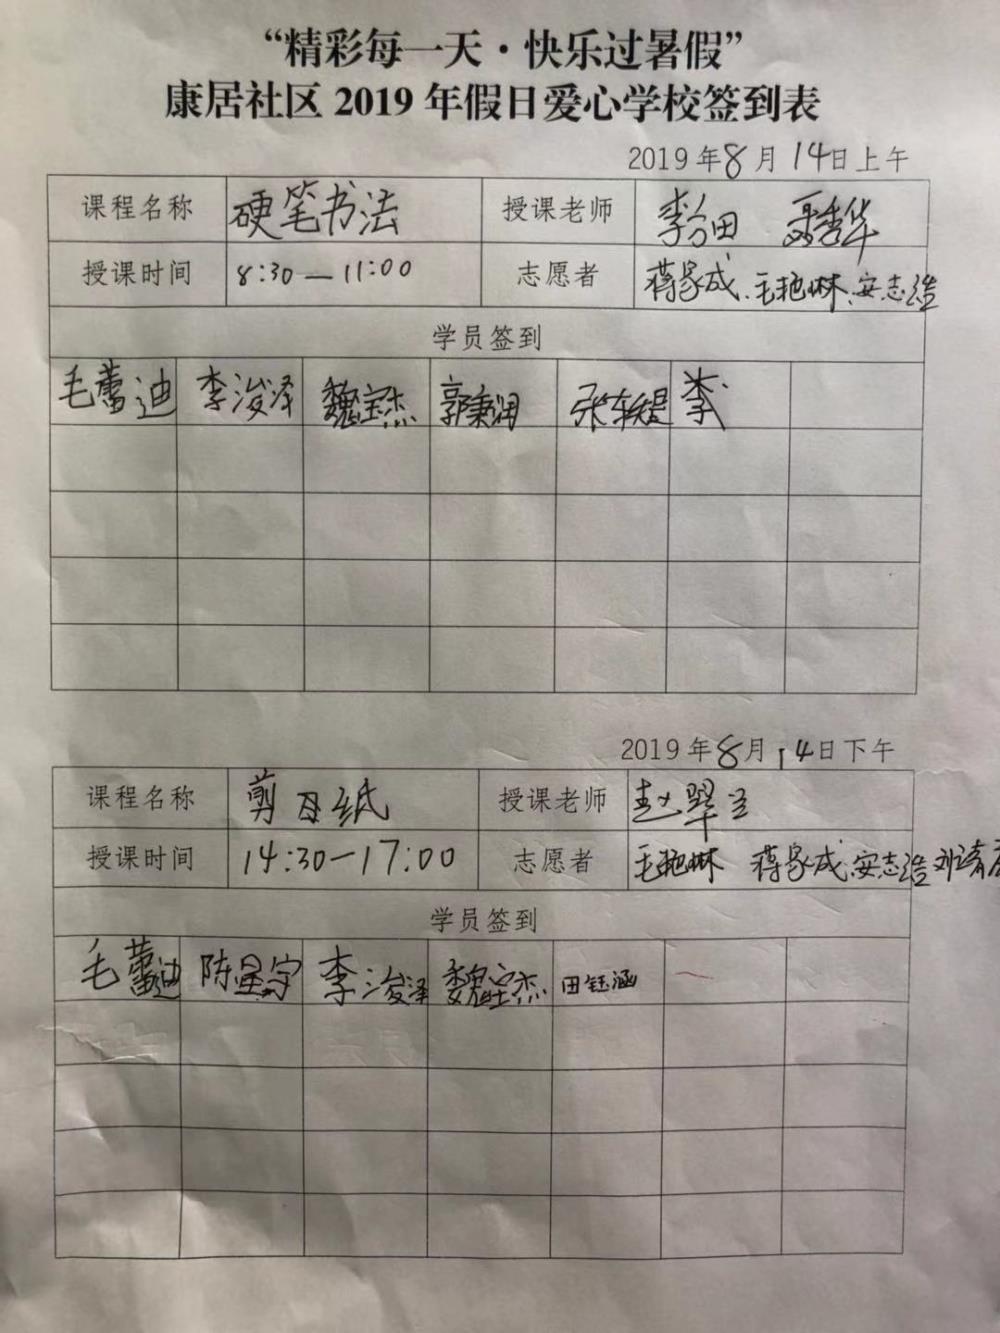 “精彩每一天·快乐过暑假”
康居社区 2019 年假日爱心学校签到表
2019 年 8 月 14 日上午
课程名称 硬笔书法 授课老师
授课时间 8:30—11:00 志愿者 蒋家成、毛艳琳、安志浩
学员签到
毛蕾迪 李浚泽 魏宝杰 郭秉润 张轶煜 李
2019 年 8 月 14 日下午
课程名称 剪纸 授课老师 赵翠兰
授课时间 14:30—17:00 志愿者 毛艳琳 蒋家成、安志浩
学员签到
毛蕾迪 陈星宇 李浚泽 魏宝杰 田钰涵